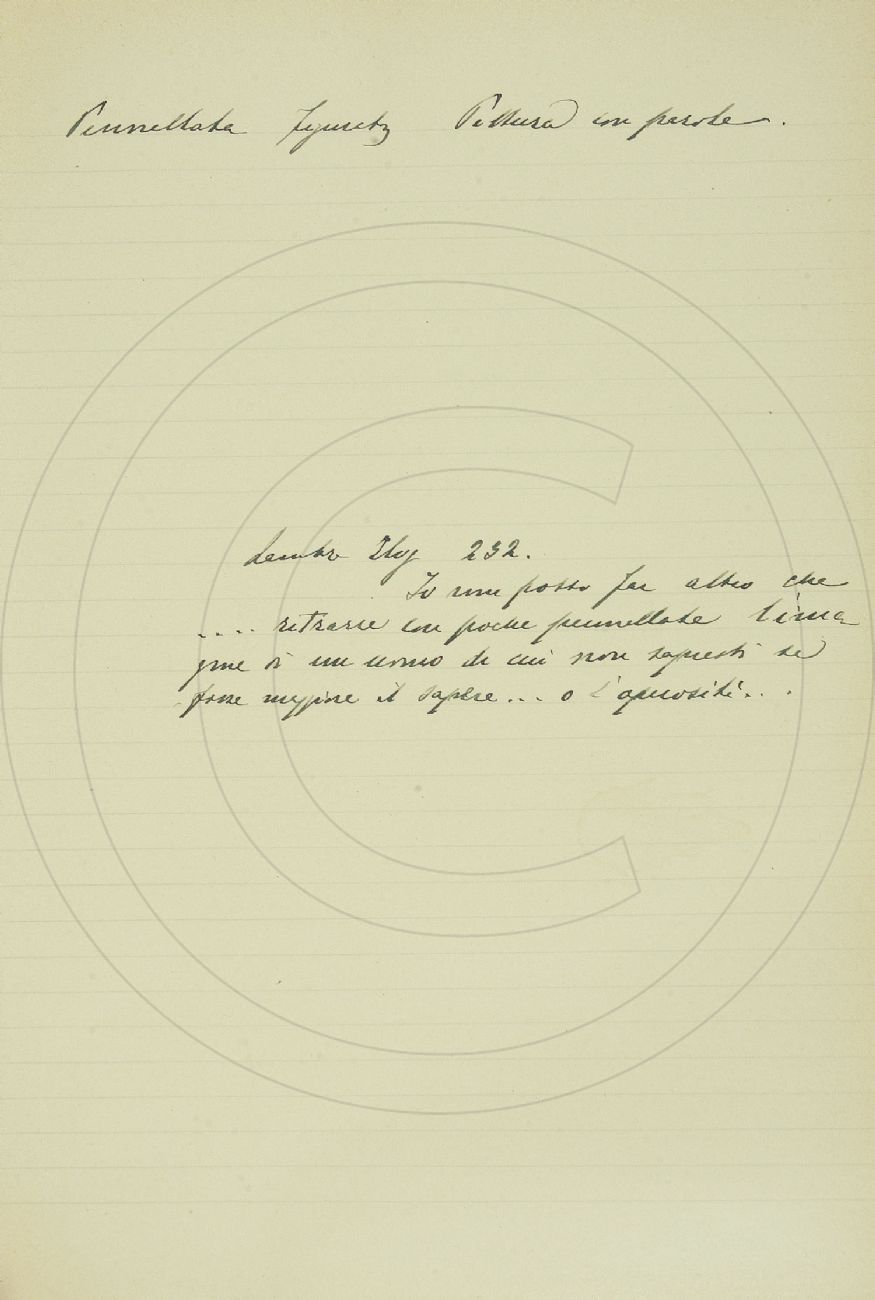 Pennellata figuratz Pittura con parole.
Lambr Elog 232.
Io non posso far altro che
.... ritrarre con poche pennellate l'ima
gine di un uomo di cui non sapresti se
fosse maggiore il sapere... o l'operosità...